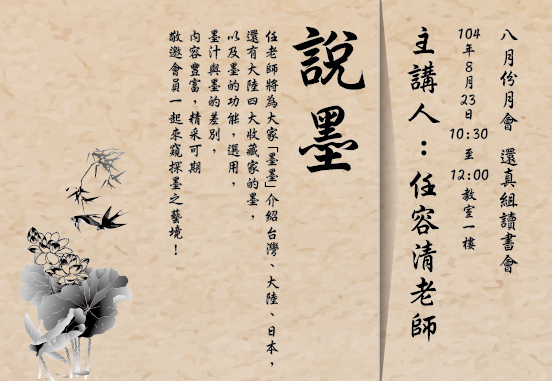 八月份月會　還真組讀書會
104年8月23日10:30至12:00教室一樓
主講人：任容清老師
說墨
任老師將為大家「墨墨」介紹台灣、大陸、日本，
還有大陸四大收藏家的墨，
以及墨的功能，選用，
墨汁與墨的差別，
內容豐富，精采可期
敬邀會員一起來窺探墨之藝境！